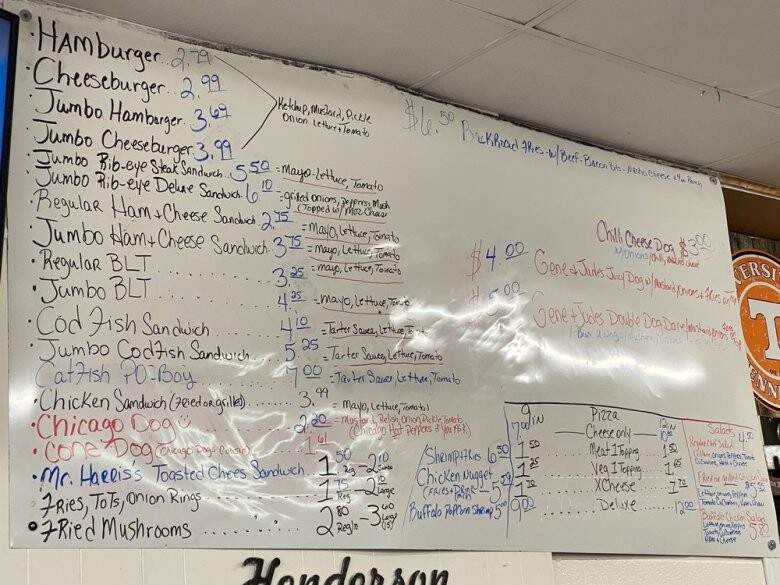 •Hamburger...2.79
Cheeseburger..2.99
•Jumbo Hamburger.3.69
•Jumbo Cheeseburger.3.99
Ketchup, Mustard, Pickle
Onion Lettuce + Tomato
•Jumbo Rib-eye Steak Sandwich..5.50 = mayo-Lettuce, Tomato
•Jumbo Rib-eye Deluxe Sandwich 6.10 = grilled onions, Peppers, Mush
(Topped w/ Moz Cheese
•Regular Ham + Cheese Sandwich 2.75 = mayo, Lettuce, Tomato
•Jumbo Ham + Cheese Sandwich.3.75 = mayo, Lettuce, Tomato
•Regular BLT ........ 3.25 = mayo, Lettuce, Tomato
•Jumbo BLT ........ 4.25 = mayo, Lettuce, Tomato
•Cod Fish Sandwich ...... 4.10 = Tarter Sauce, Lettuce, Tomato
•Jumbo Codfish Sandwich 5.25 = Tarter Sauce, Lettuce, Tomato
Catfish PO-Boy ...... 7.00 = Tarter Sauce, Lettuce, Tomato
•Chicken Sandwich (Fried or grilled).... 3.99 = Mayo, Lettuce, Tomato)
•Chicago Dog ........ 2.20 = Mustard, Relish, Onion, Pickle, Tomato
(Chicago Hot Peppers if You Ask)
•Cone Dog (Chicago Dogs Cousin) 1.61
•Mr. Harris's Toasted Chees Sandwich .. 1.50 Reg - 2.10 Jumbo
•Fries, Tots, Onion Rings .......... 1.75 Reg - 2.10 Large
•Fried Mushrooms ........ 2.80 Reg - 3.60 Large
$6.50 Fries - w/ Beef - Bacon Bits - Nacho Cheese
Chilli Cheese Dog $3.00
$4.00 Gene + Judes Juicy Dog w/ Mustard, Onions + Fries on Top
$5.00 Gene + Judes Double Dog Dare
Shrimp + Fries 6.50
Chicken Nugget
Buffalo Popcorn Shrimp 5.00
9 IN Pizza 12 IN
7.00 — Cheese only —
1.50 ... Meat 1 Topping ... 1.95
1.25 ... Veg 1 Topping ... 1.65
1.10 ... XCheese ... 1.70
9.00 ...... Deluxe ..... 12.00
Salads
4.50
Fried or grilled Chicken
$5.25
Buffalo Chicken Salad
Henderson